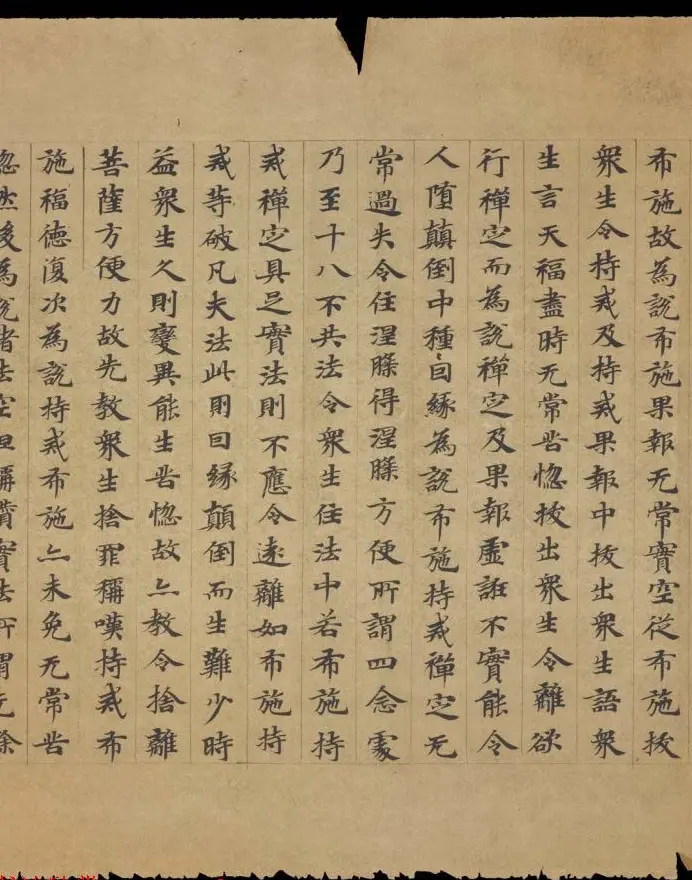 布施故為說布施果報无常實空從布施拔
眾生令持戒及持戒果報中拔出眾生語眾
生言天福盡時无常苦惱拔出眾生令離欲
行禪定而為說禪定及果報虛誑不實能令
人墮顛倒中種種因緣為說布施持戒禪定无
常過失令住涅槃得涅槃方便所謂四念處
乃至十八不共法令眾生住法中若布施持
戒禪定具足實法則不應令遠離如布施持
戒等破凡夫法此則因緣顛倒而生難少時
益眾生久則變異能生苦惱故亦教令捨離
菩薩方便力故先教眾生捨罪稱嘆持戒布
施福德復次為說持戒布施亦未免无常苦
惱然後為說諸法空但稱讚實法所謂无餘